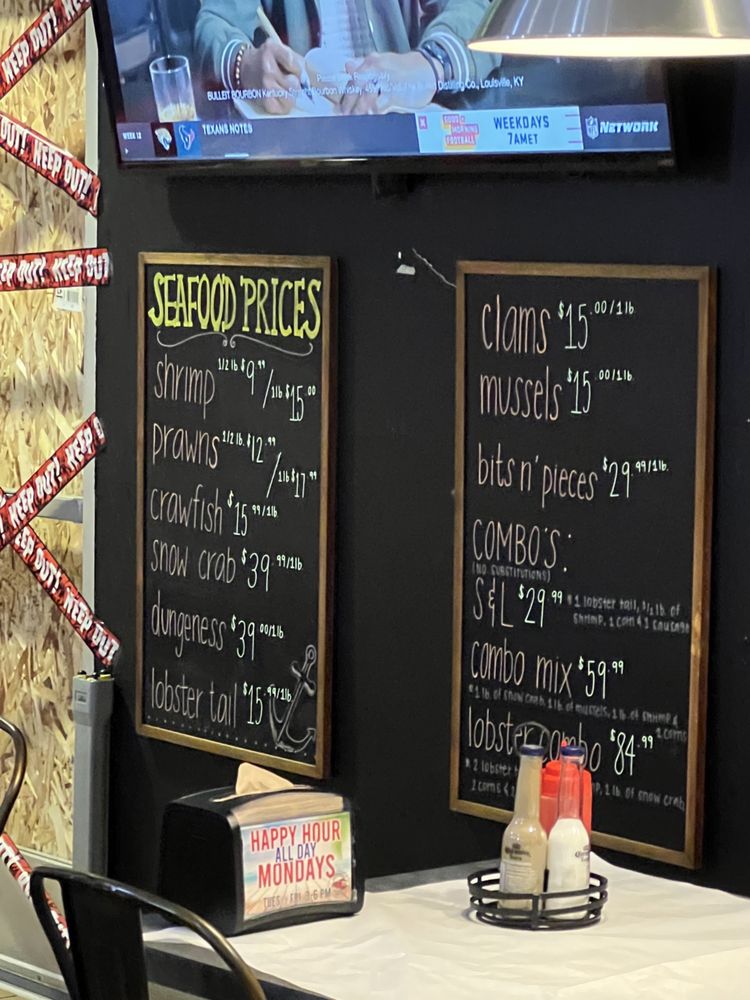 KEEP OUT!
OUT! KEEP OUT!
EEP OUT! KEEP OUT!
KEEP OUT! KEEP
EEP OUT! KEEP OUT!
BULLEIT BOURBON Kentucky Straight Bourbon Whiskey, Distilling Co., Louisville, KY
WEEK 12
TEXANS NOTES
GOOD MORNING FOOTBALL
WEEKDAYS
7AM ET
NFL NETWORK
SEAFOOD PRICES
shrimp 1/2 lb $9.99 / 1lb $15.00
prawns 1/2 lb. $12.99 / 1lb $17.99
crawfish $15.99/1lb
snow crab $39.99/1lb
dungeness $39.00/1lb
lobster tail $15.99/1lb
clams $15.00/1lb.
mussels $15.00/1lb.
bits n' pieces $29.99/1lb.
COMBO'S:
(NO SUBSTITUTIONS)
S&L $29.99 1 lobster tail, 1/2 lb. of
shrimp, 1 corn & 1 sausage
combo mix $59.99
1 lb. of snow crab, 1 lb. of mussels, 1 lb. of shrimp &
corns
lobster combo $84.99
2 lobster
2 corns & 1 lb. of snow crab
HAPPY HOUR
ALL DAY
MONDAYS
TUES - FRI 3-6 PM